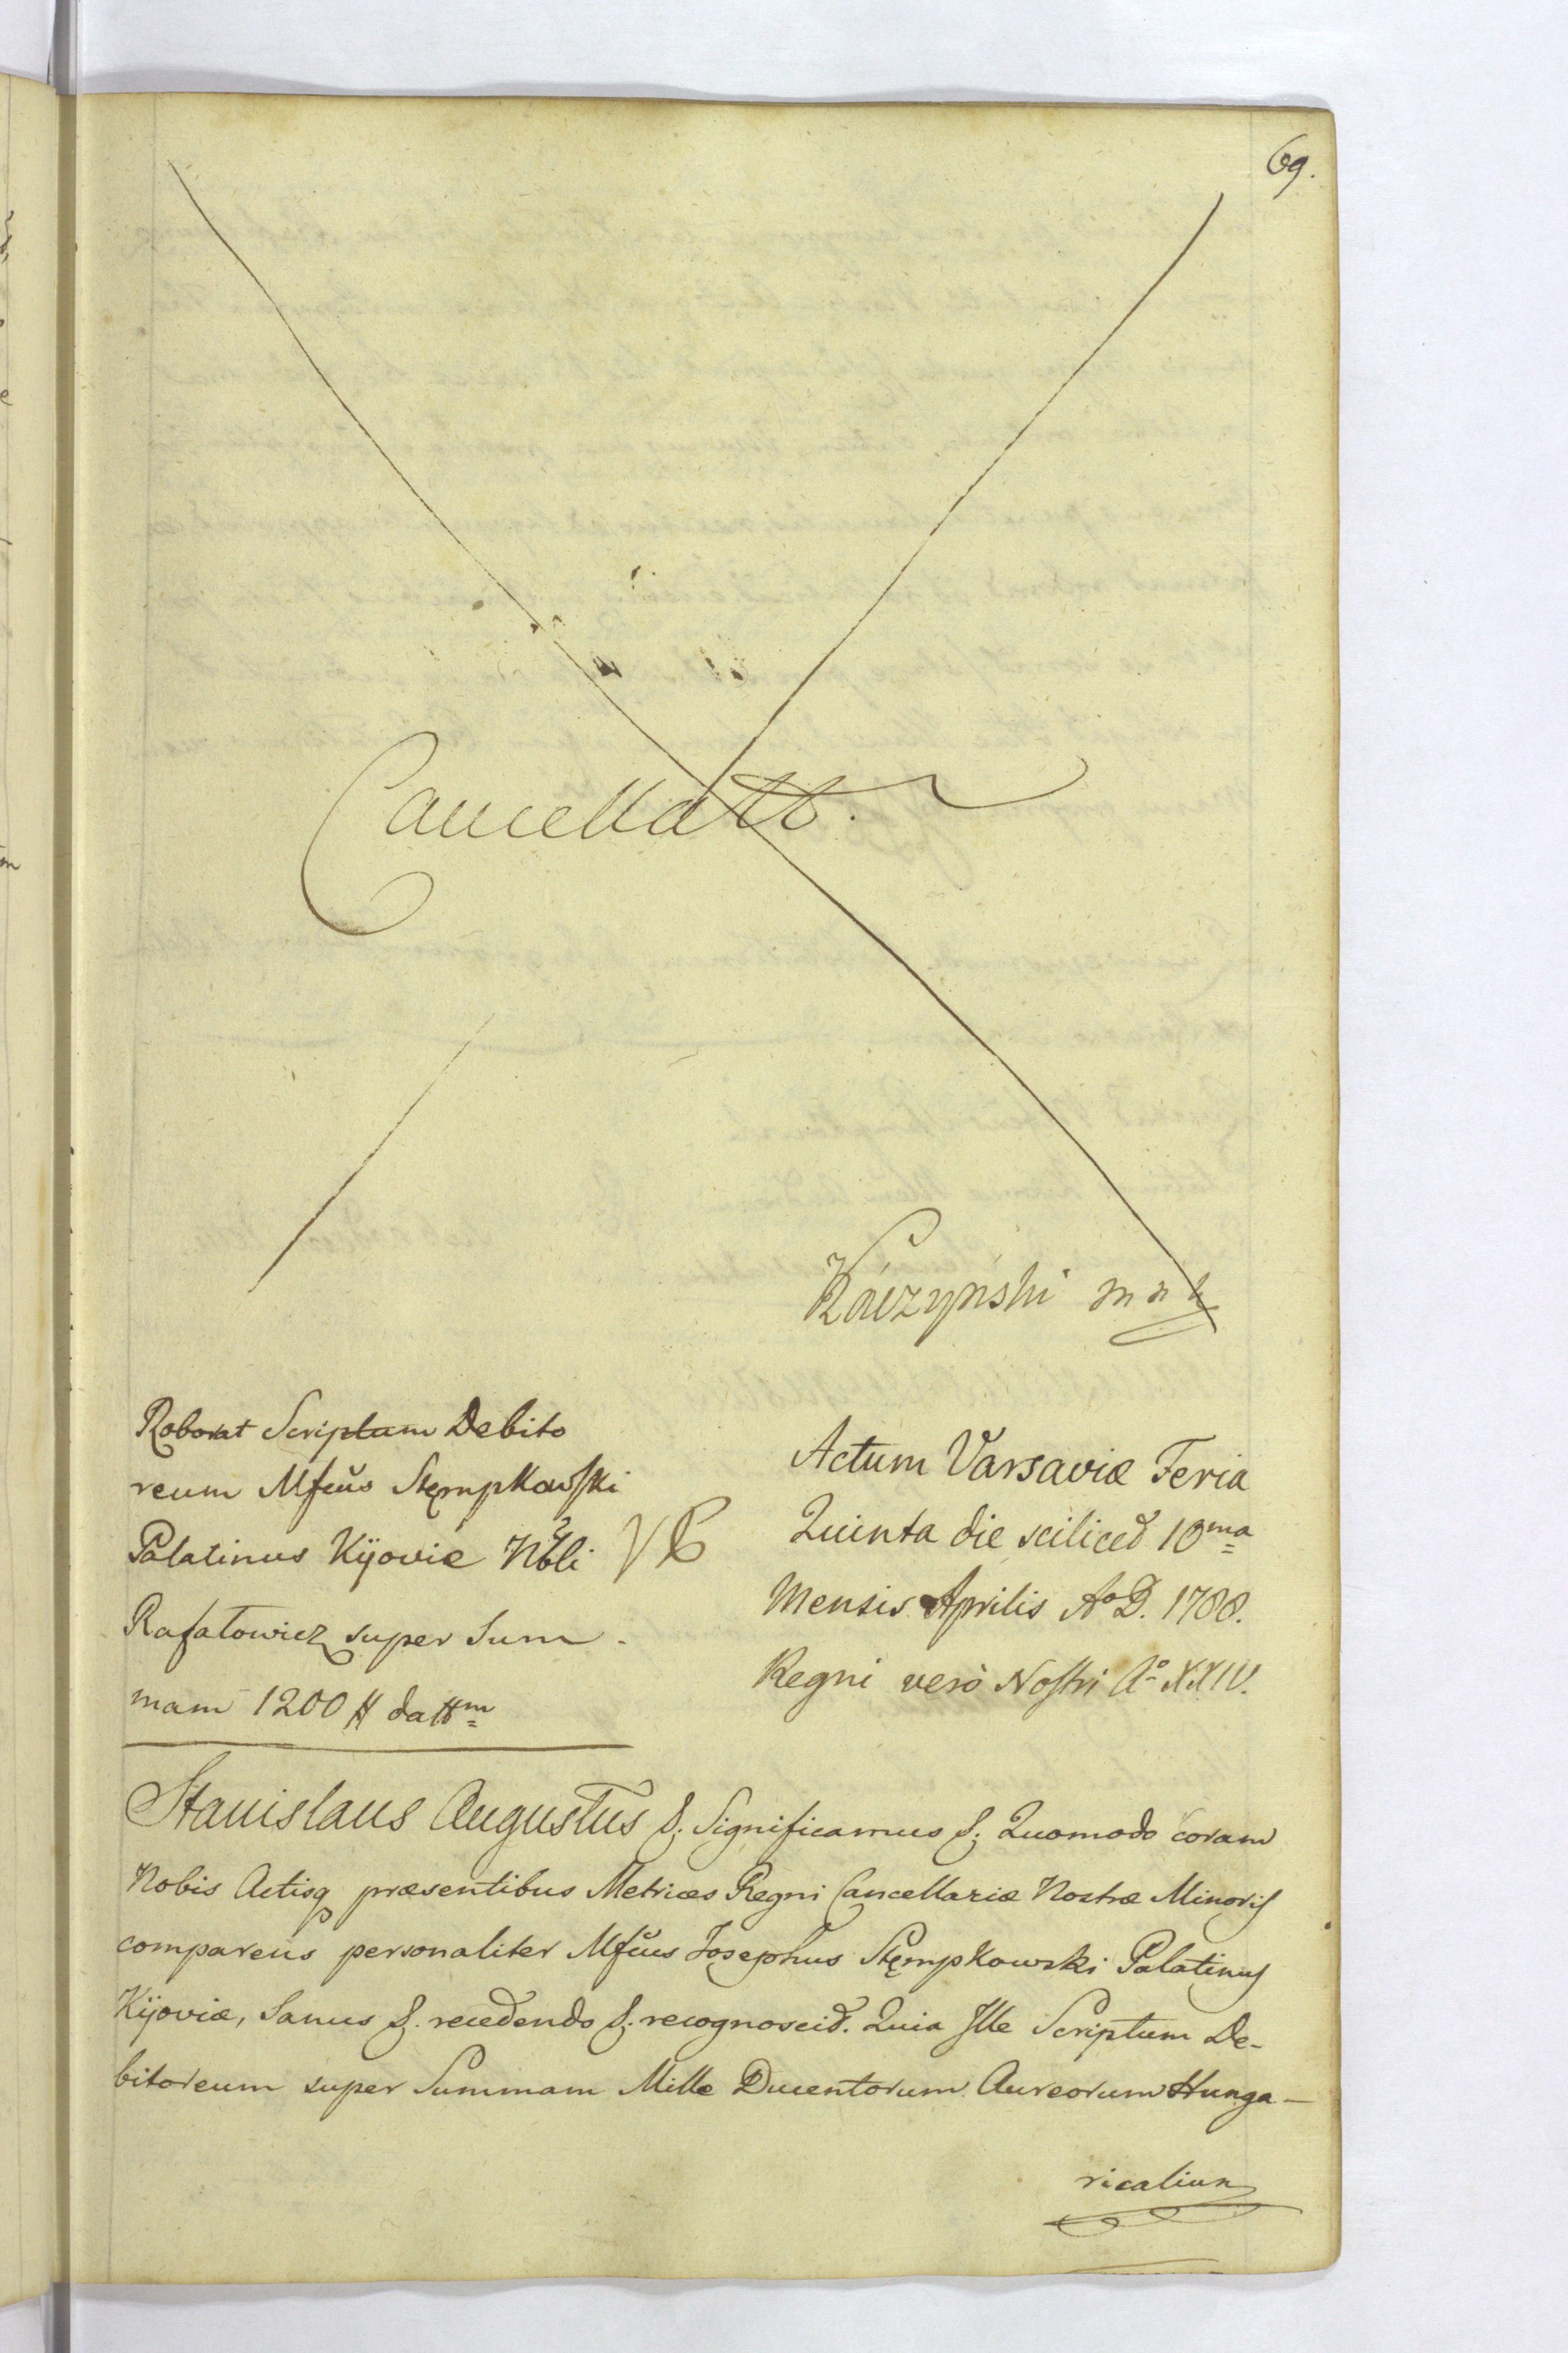 69.
Cancellatt.
Kaczynski mp
Roborat Scriptum Debito
reum Mfcus Stęmpkowski
Palatinus Kijoviæ Nbli
Rafałowicz super Sum-
mam 1200 # dattm
Actum Varsaviæ Feria
Quinta die, sciliced 10ma
Mensis Aprilis Ao D. 1788.
Regni verò Nostri Ao XXIV.
Stanislaus Augustus &. Significamus &. Quomodo coram
Nobis Actisq præsentibus Metrices Regni Cancellariæ Nostræ Minoris
comparens personaliter Mfcus Josephus Stęmpkowski Palatinus
Kijoviæ, Sanus &. recedendo &. recognoscid. Quia Ille Scriptum De-
bitoreum super Summam Mille Ducentorum Aureorum Hunga-
ricalium